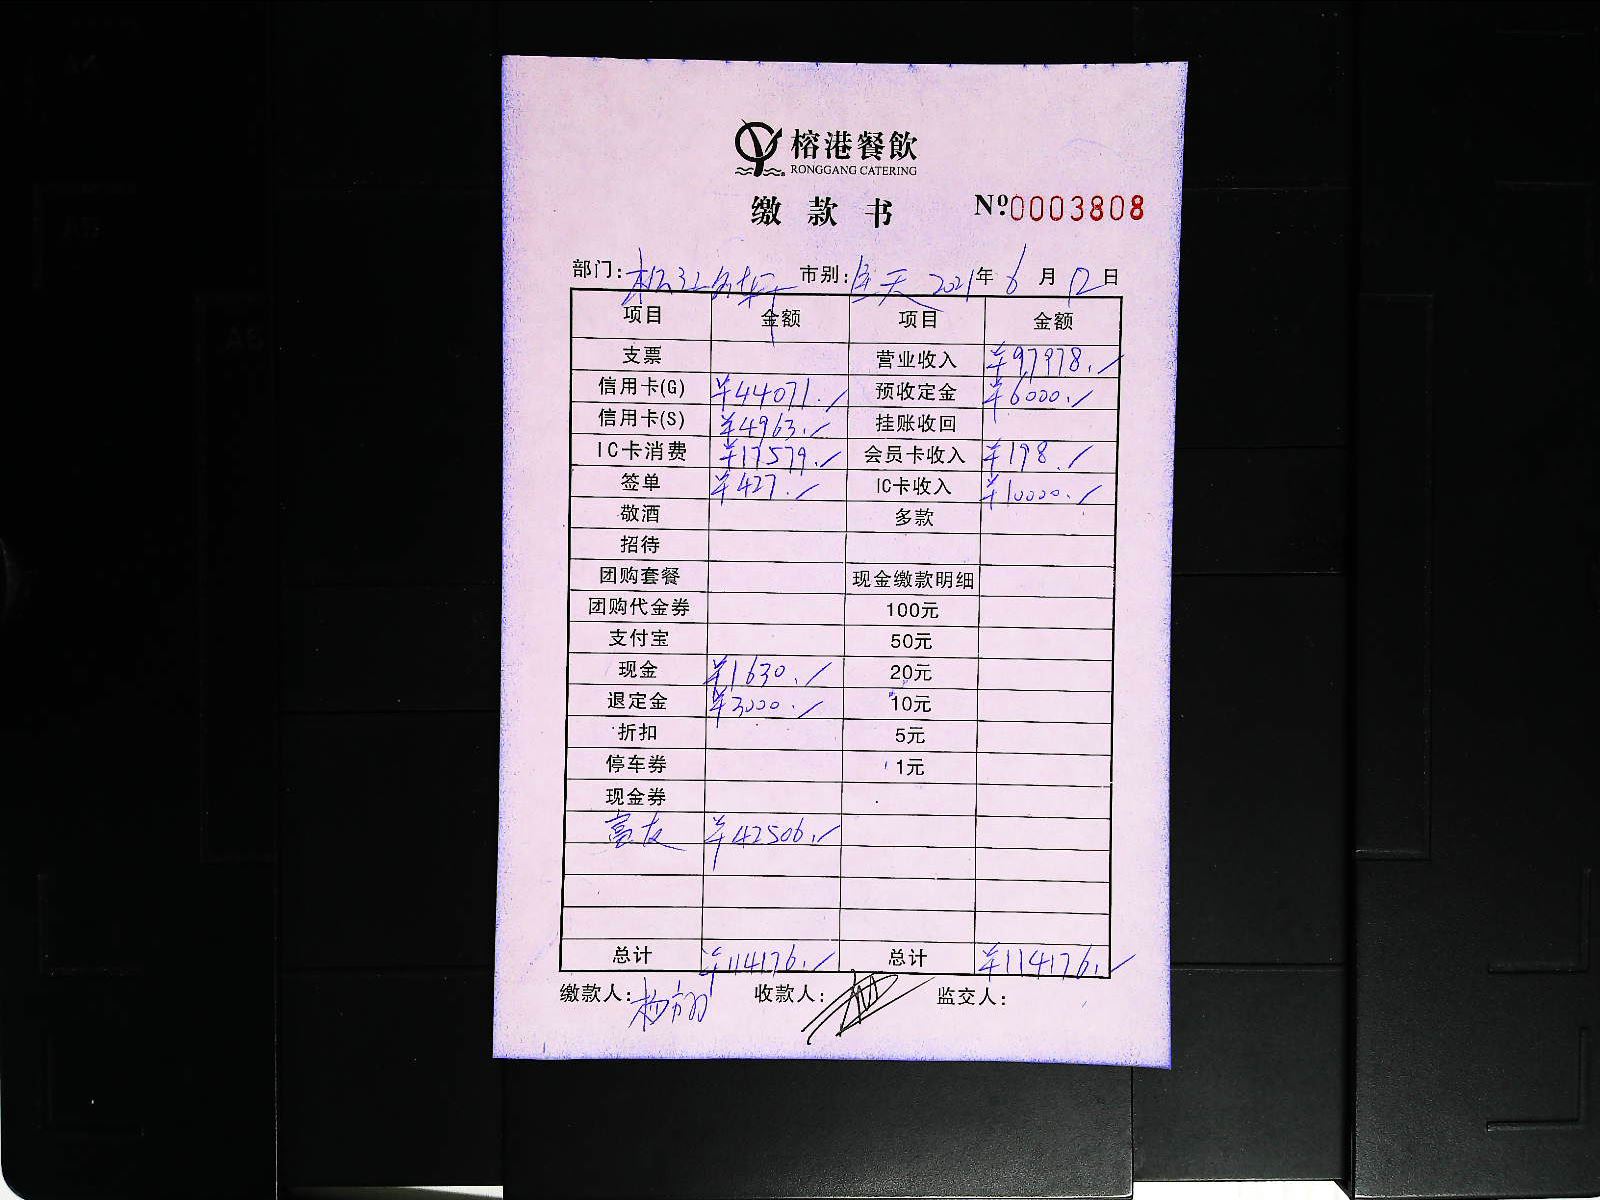 榕港餐飲
RONGGANG CATERING
缴款书 Nº0003808
部门: 松江 市别: 全天 2021年 6月 12日
项目 金额 项目 金额
支票 营业收入 ¥97978.
信用卡(G) ¥44071. 预收定金 ¥6000.
信用卡(S) ¥4963. 挂账收回
IC卡消费 ¥17579. 会员卡收入 ¥198.
签单 ¥427. IC卡收入 ¥10000.
敬酒 多款
招待
团购套餐 现金缴款明细
团购代金券 100元
支付宝 50元
现金 ¥1630. 20元
退定金 ¥3000. 10元
折扣 5元
停车券 1元
现金券
¥42506.
总计 ¥114176. 总计 ¥114176.
缴款人: 杨 收款人: 监交人: